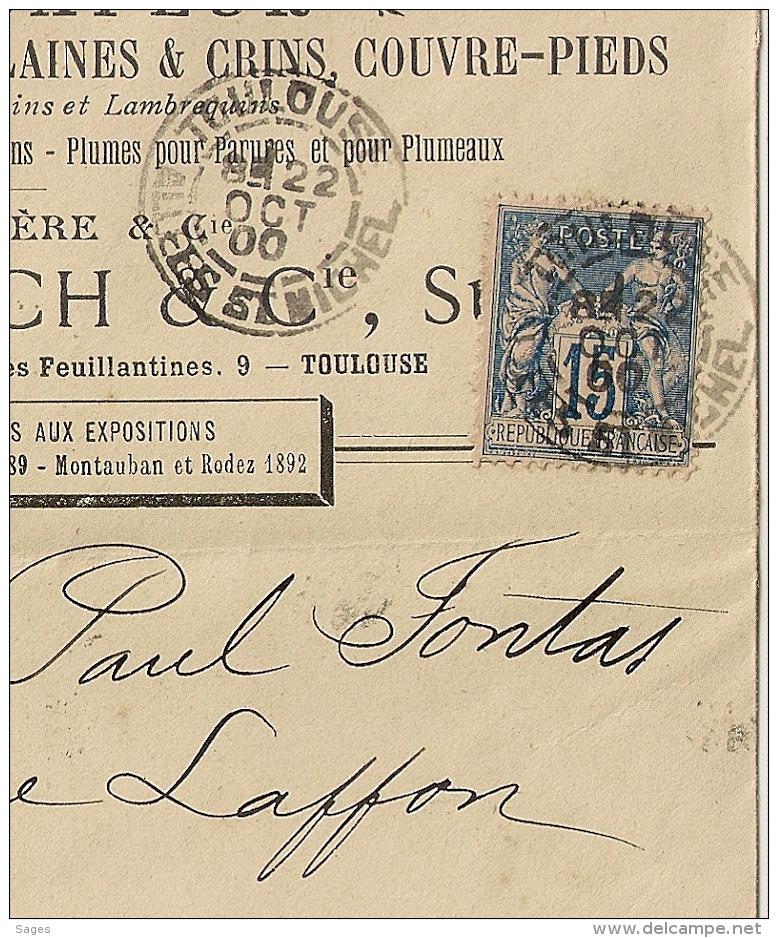 LAINES & CRINS, COUVRE-PIEDS
ins et Lambrequins
ns - Plumes pour Parures et pour Plumeaux
TOULOUSE
8E 22
OCT
00
ST MICHEL
ÈRE & Cie
CH & Cie, Su
es Feuillantines. 9 — TOULOUSE
POSTE
15
REPUBLIQUE FRANCAISE
S AUX EXPOSITIONS
89 - Montauban et Rodez 1892
Paul Fontas
e Laffon
Sages
www.delcampe.net